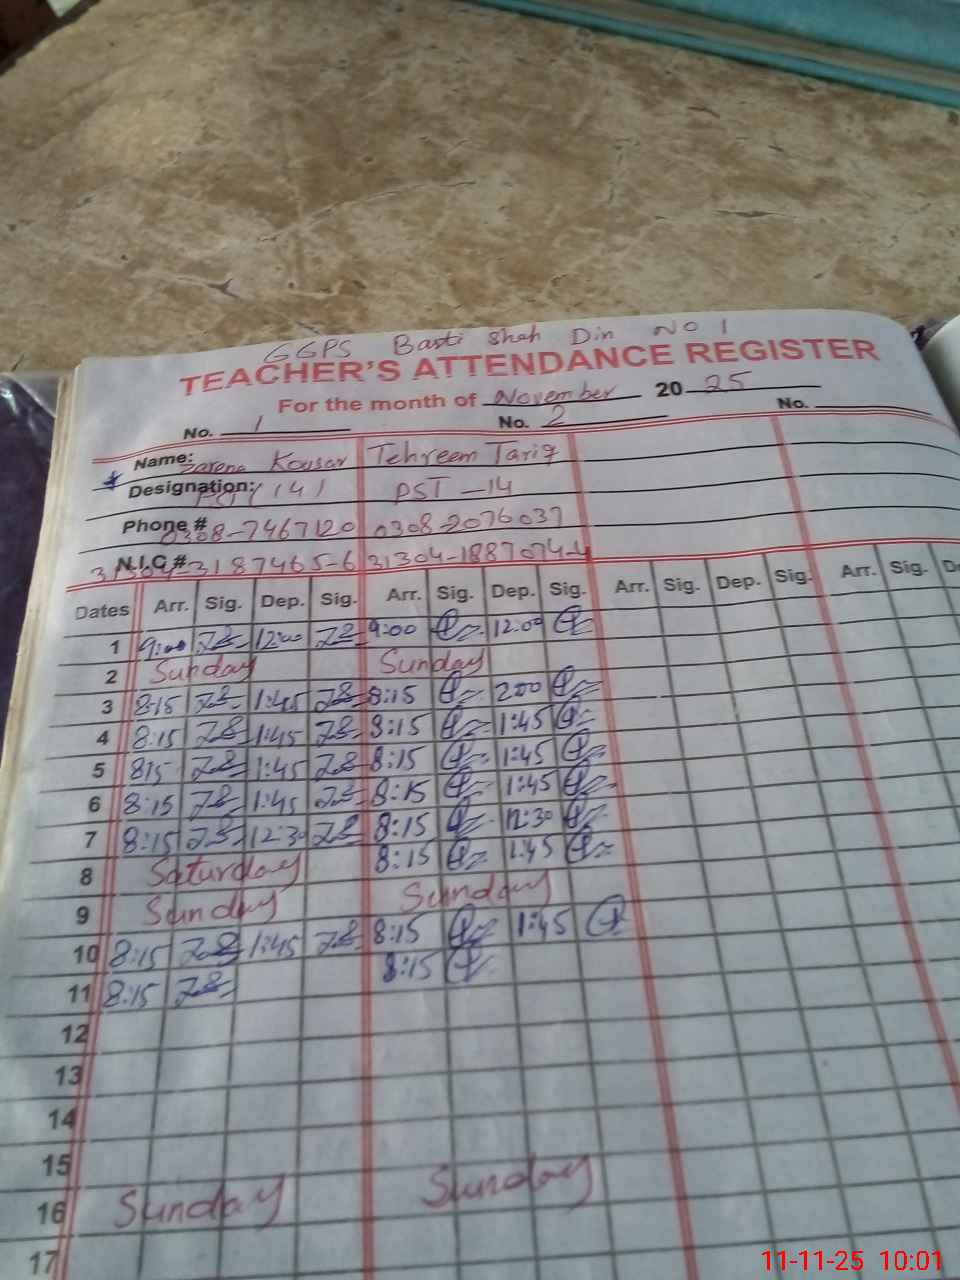 GGPS Basti Shah Din NO 1
TEACHER'S ATTENDANCE REGISTER
For the month of November 2025
No. 1 No. 2 No.
Name: Zarena Kousar Tehreem Tariq
Designation: PST (14) PST -14
Phone # 0308-7467120 0308-2076037
N.I.C # 31304-3187465-6 31304-1887074-4
Dates Arr. Sig. Dep. Sig. Arr. Sig. Dep. Sig. Arr. Sig. Dep. Sig. Arr. Sig.
1 9:00 12:00 9:00 12:00
2 Sunday Sunday
3 8:15 1:45 8:15 2:00
4 8:15 1:45 8:15 1:45
5 815 1:45 8:15 1:45
6 8:15 1:45 8:15 1:45
7 8:15 12:30 8:15 12:30
8 Saturday 8:15 1:45
9 Sunday Sunday
10 8:15 1:45 8:15 1:45
11 8:15 8:15
12
13
14
15
16 Sunday Sunday
17
11-11-25 10:01